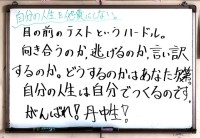 自分の人生を他責にしない。
目の前のラストというハードル。
向き合うのか、逃げるのか、言い訳
するのか。どうするのかはあなた次第
自分の人生は自分でつくるのです。
がんばれ！丹中生！